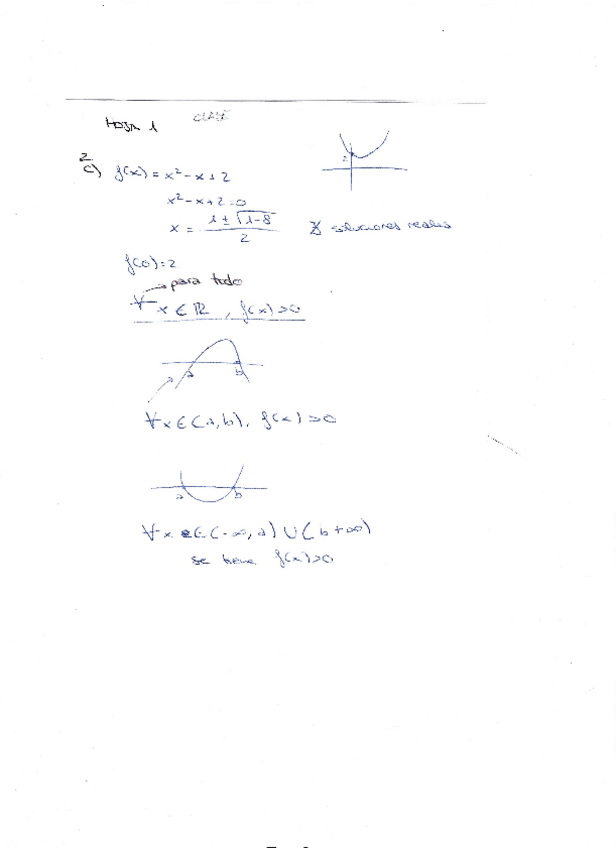 HOJA 1 CLASE
2
c) f(x) = x² - x + 2
2
x² - x + 2 = 0
x = (1 ± √(1-8)) / 2 ∄ soluciones reales
f(0) = 2
→ para todo
∀ x ∈ ℝ, f(x) > 0
a b
∀ x ∈ (a, b), f(x) > 0
a b
∀ x ∈ (-∞, a) ∪ (b + ∞)
se tiene f(x) > 0